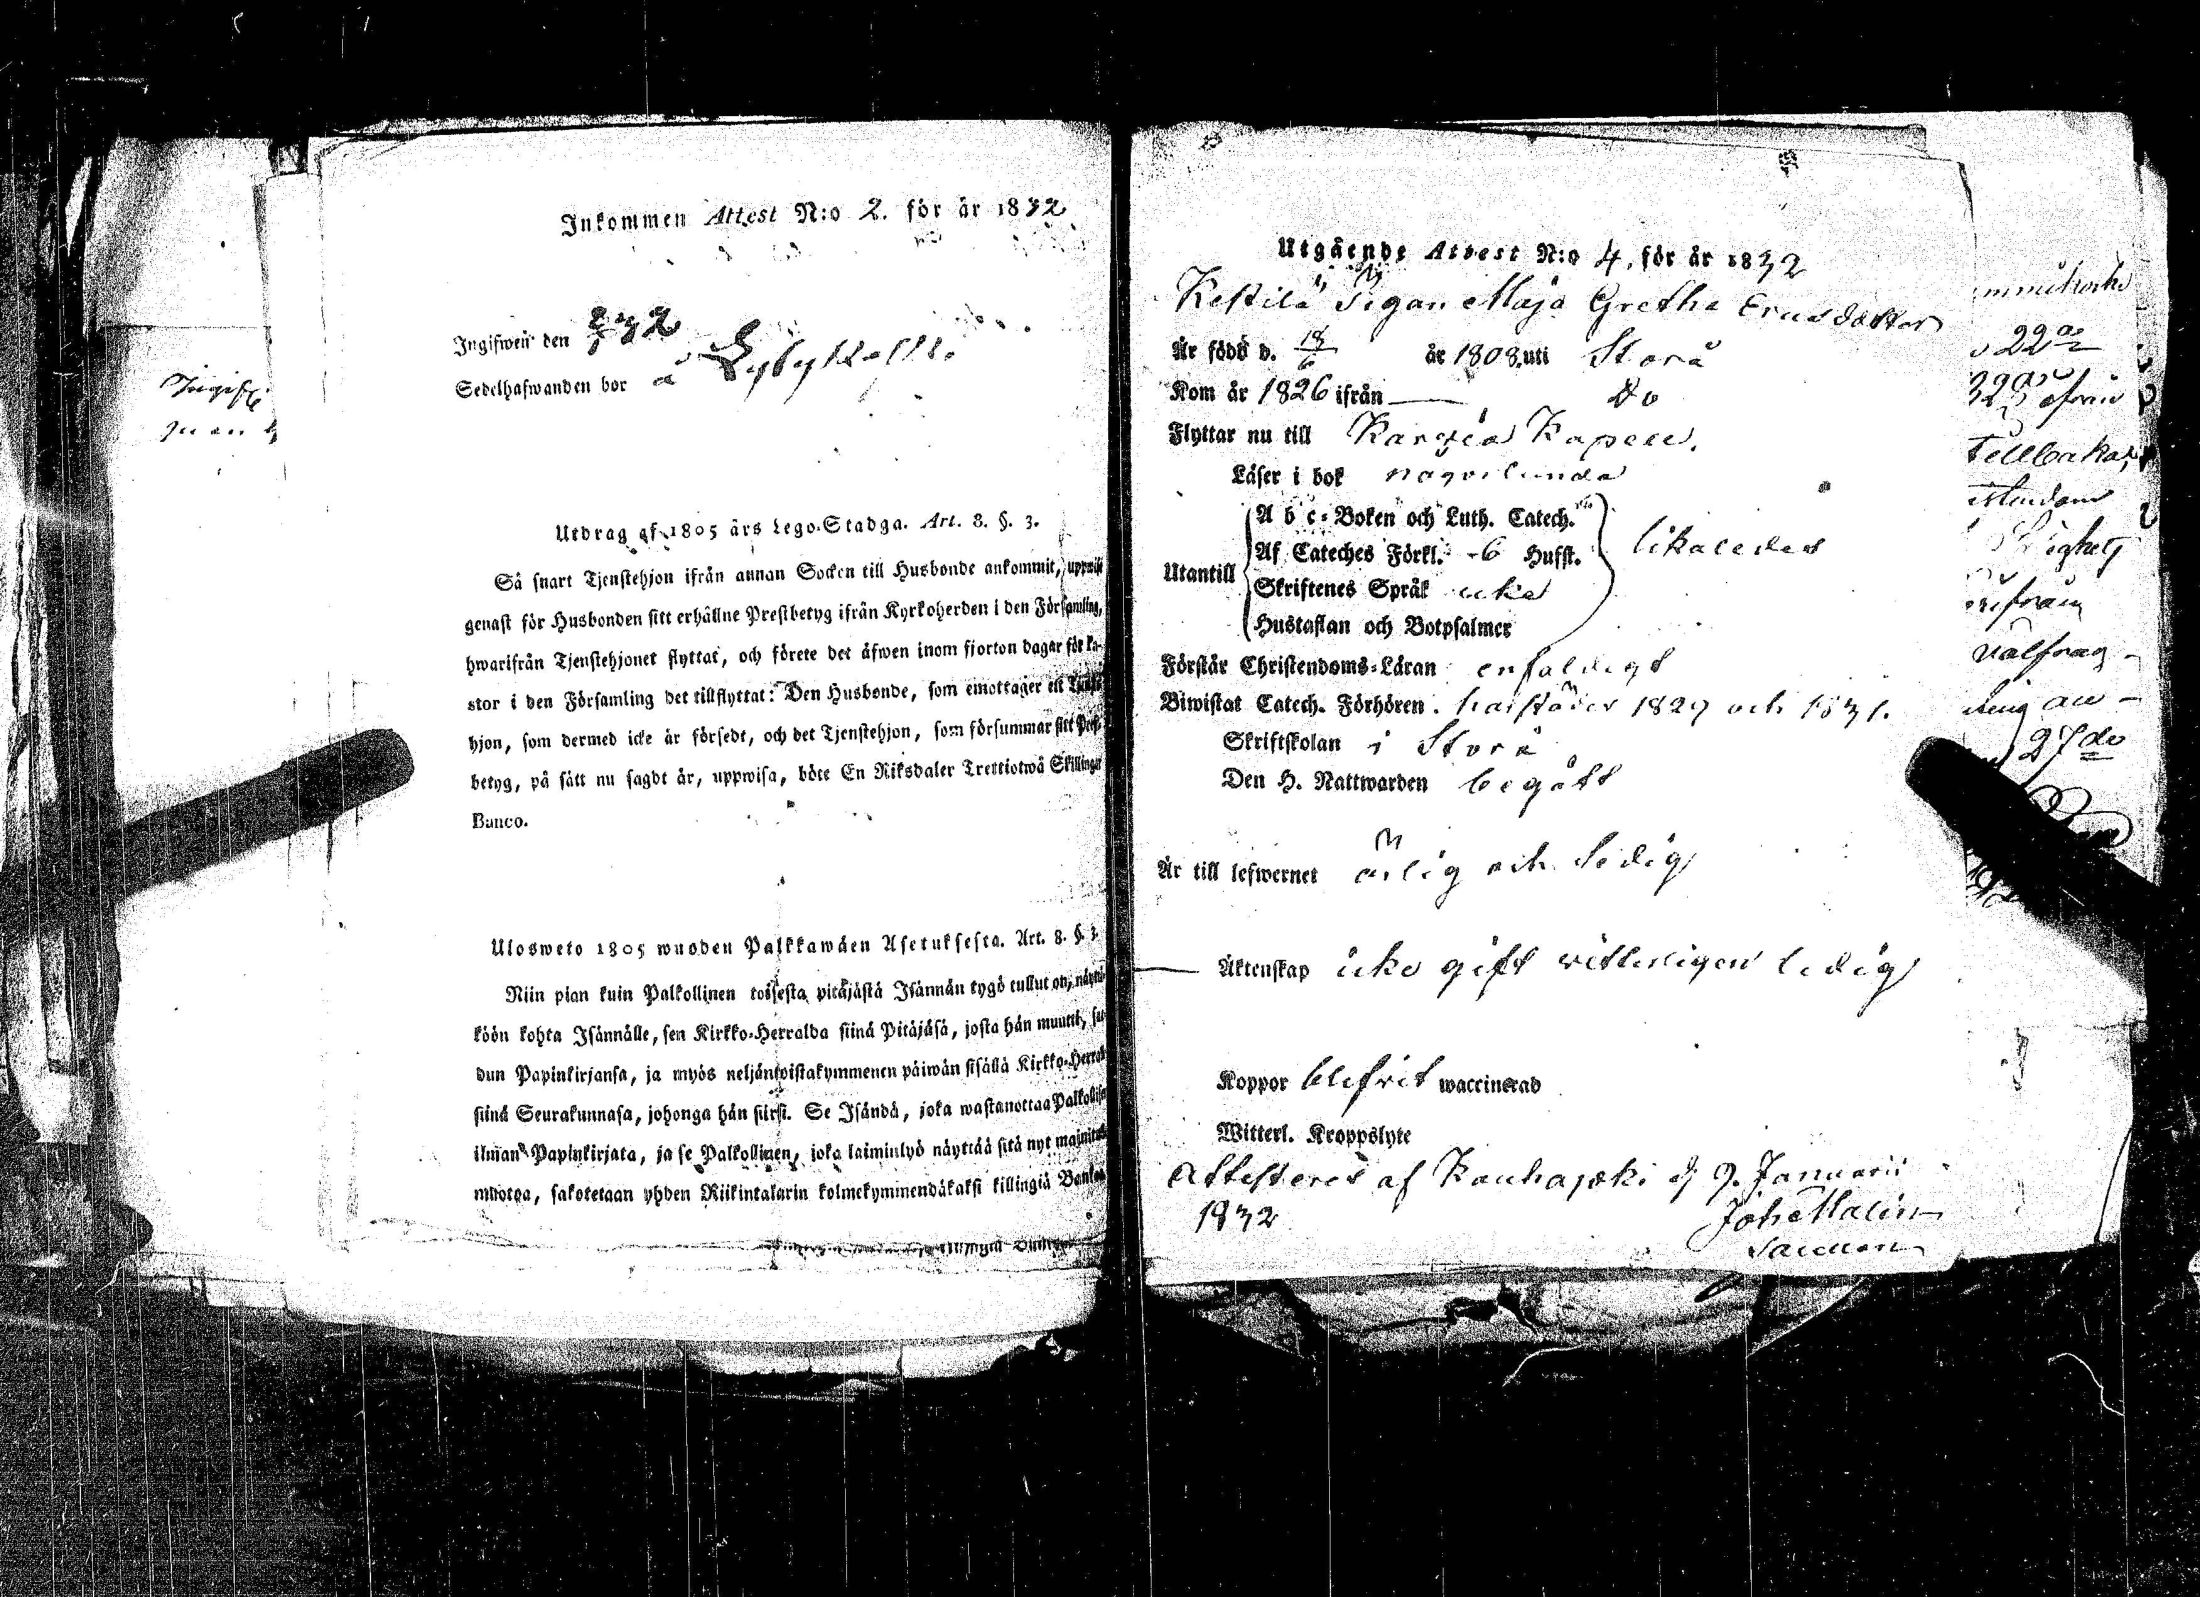 Inkommen Attest N:o 2. för år 1832
Ingifwen den 8/1 32
Sedelhafwanden bor å
Utdrag af 1805 års Lego-Stadga. Art. 8. §. 3.
Så snart Tjenstehjon ifrån annan Socken till Husbonde ankommit, uppwise
genast för Husbonden sitt erhållne Prestbetyg ifrån Kyrkoherden i den Församling,
hwarifrån Tjenstehjonet flyttat, och förete det äfwen inom fjorton dagar för Pa-
stor i den Församling det tillflyttat: Den Husbonde, som emottager ett Tjenste-
hjon, som dermed icke är försedt, och det Tjenstehjon, som försummar sitt Prest-
betyg, på sätt nu sagdt är, uppwisa, böte En Riksdaler Trettiotwå Skillingar
Banco.
Ulosweto 1805 wuoden Palkkawäen Asetuksesta. Art. 8. §. 3.
Niin pian kuin Palkollinen toisesta pitäjästä Isännän tygö tullut on, näyttä-
köön kohta Isännälle, sen Kirkko-Herralda siinä Pitäjäsä, josta hän muutti, saa-
dun Papinkirjansa, ja myös neljäntoistakymmenen päiwän sisällä Kirkko-Herralle
siinä Seurakunnasa, johonga hän siirsi. Se Isändä, joka wastanottaa Palkollisen
ilman Papinkirjata, ja se Palkollinen, joka laiminlyö näyttää sitä nyt mainitulla
muotoa, sakotetaan yhden Riikintalarin kolmekymmendäkaksi killingiä Bankos
Utgående Attest N:o 4, för år 1832
Kestilä Pigan Maja Gretha Ersdotter
Är född d. 18/6 år 1808. uti Storå
Kom år 1826 ifrån — Do
Flyttar nu till Karvia Kapell.
Läser i bok någorlunda
Utantill
A b c-Boken och Luth. Catech.
Af Cateches Förkl. - 6 Hufst.
Skriftenes Språk icke
Hustaflan och Botpsalmer
likaledes
Förstår Christendoms-Läran enfaldigt
Biwistat Catech. Förhören 1829 och 1831.
Skriftskolan i Storå
Den H. Nattwarden begått
Är till lefwernet ärlig och sedig
Äktenskap icke gift witterligen ledig
Koppor blifvit waccinerad
Witterl. Kroppslyte
Attesteras af Kauhajoki d 9. Januarii
1832 Joh Malin